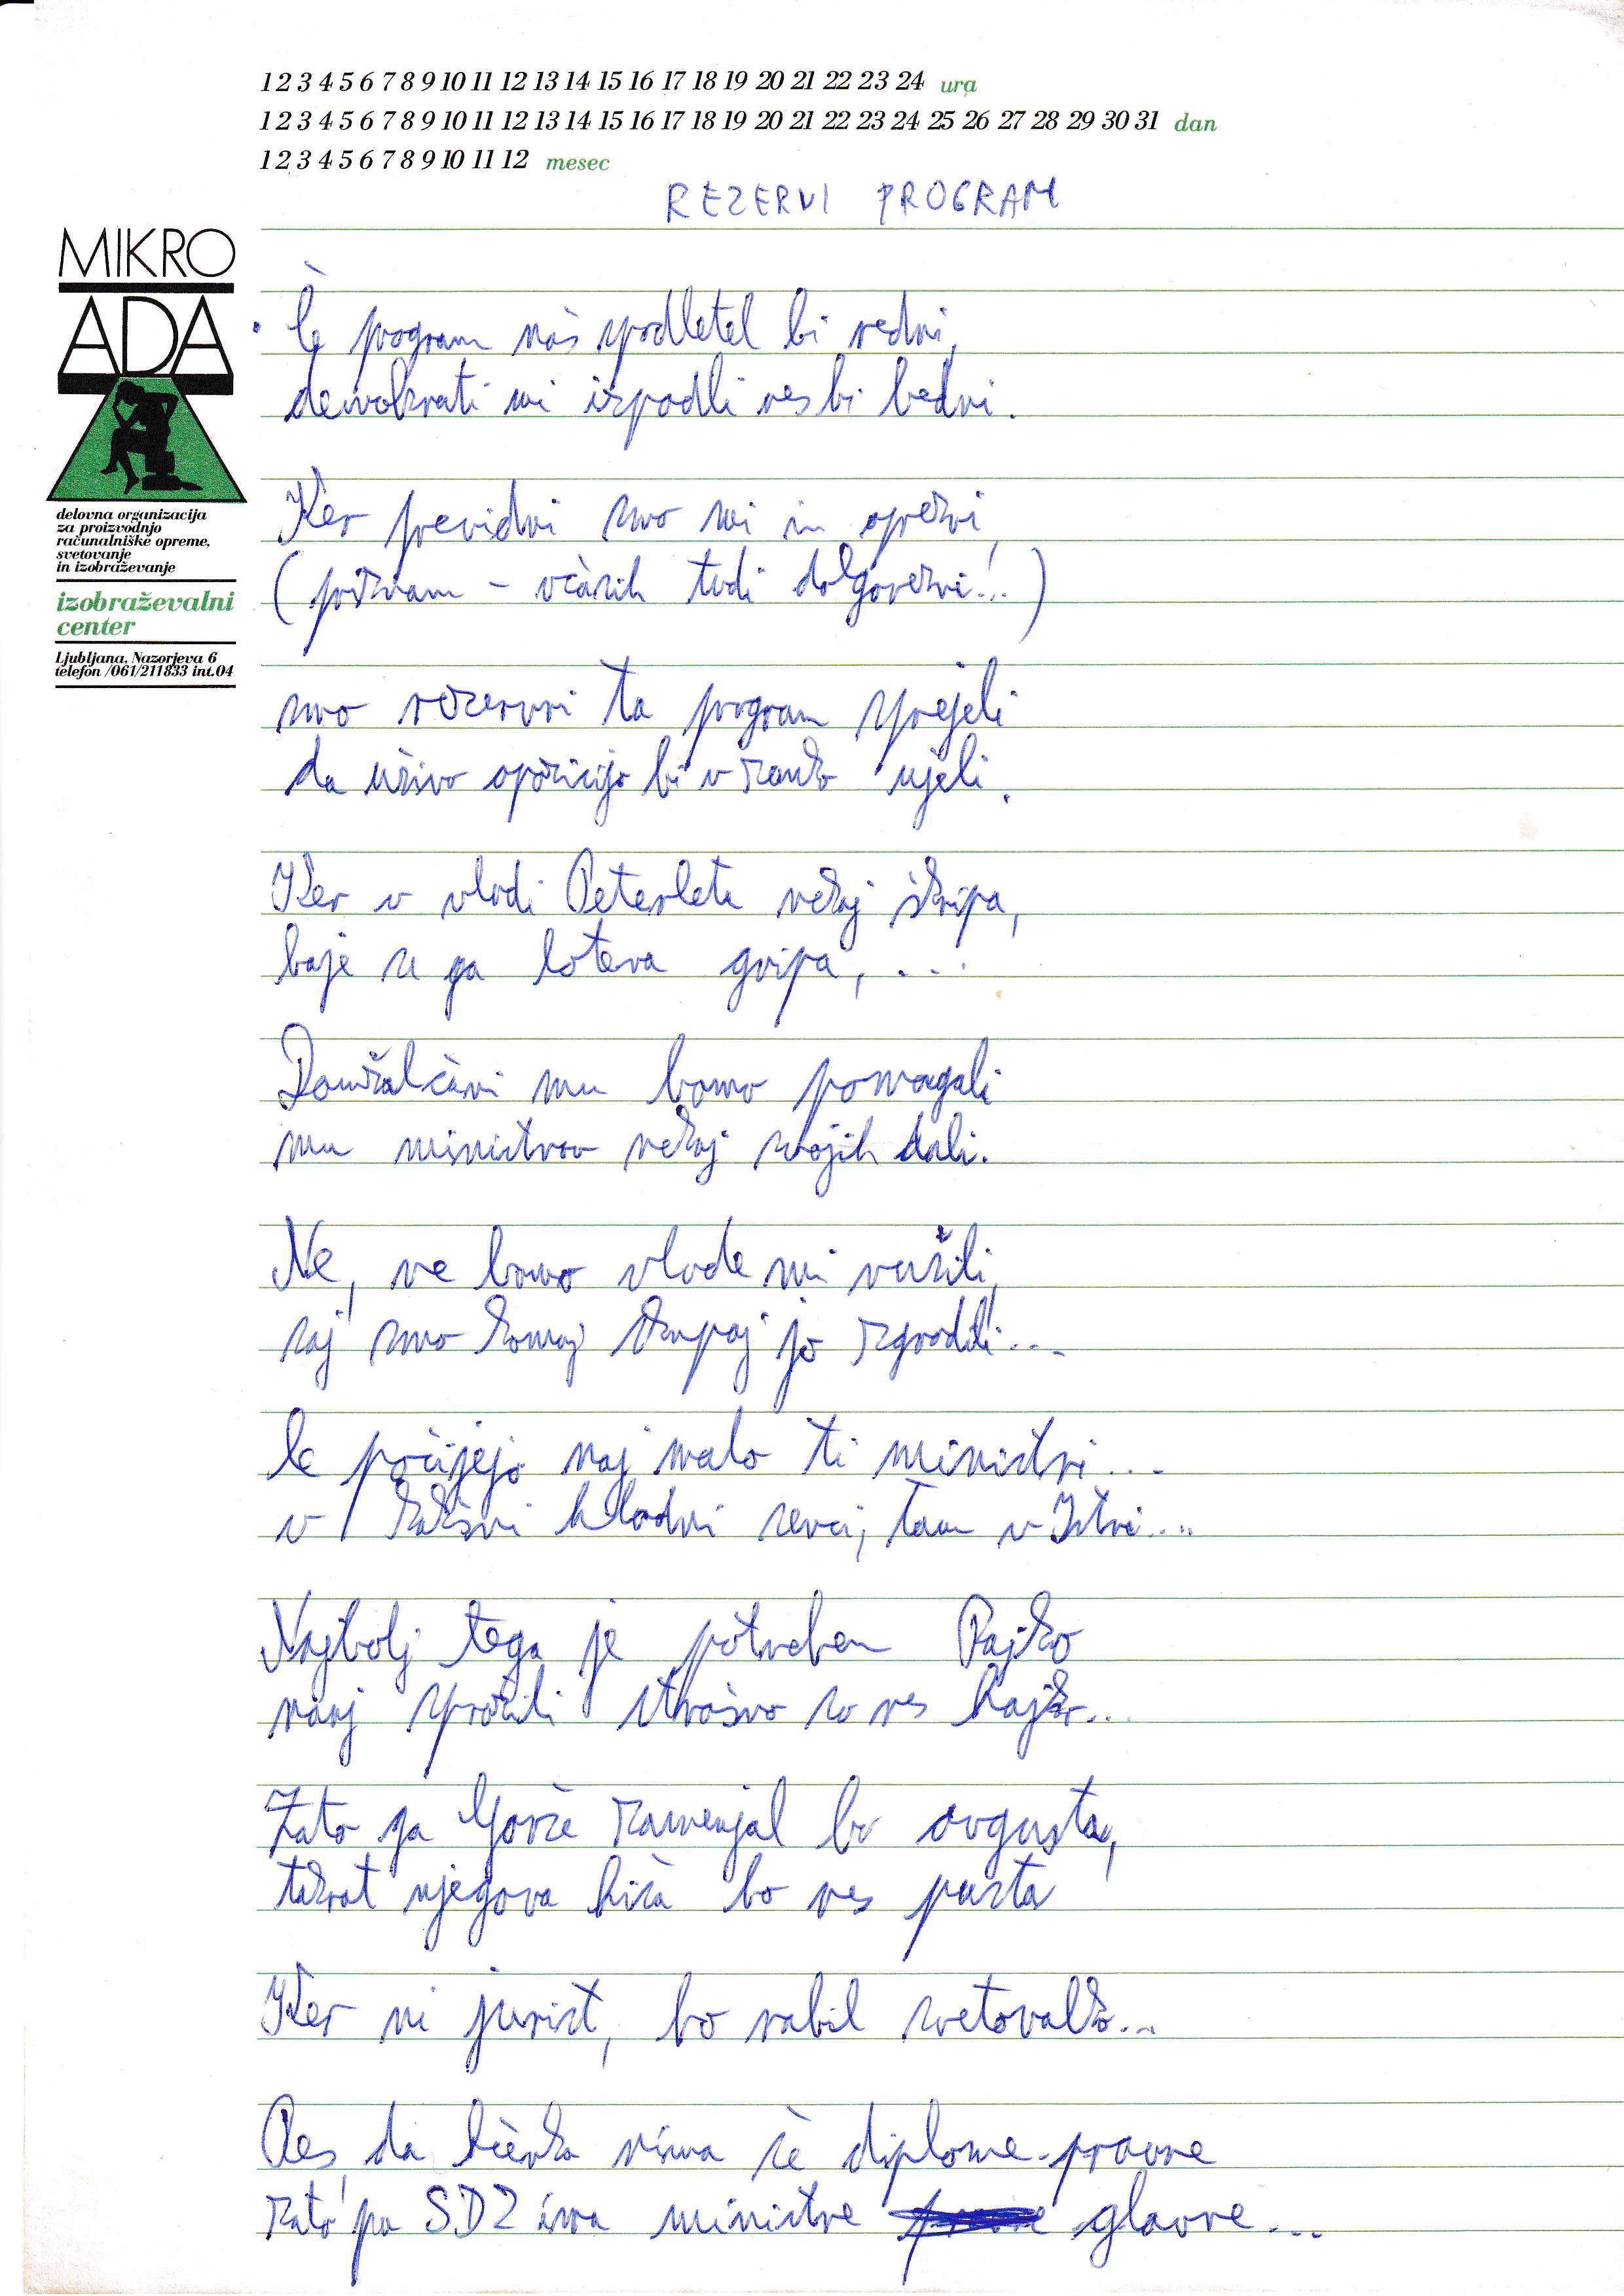 1 2 3 4 5 6 7 8 9 10 11 12 13 14 15 16 17 18 19 20 21 22 23 24 ura
1 2 3 4 5 6 7 8 9 10 11 12 13 14 15 16 17 18 19 20 21 22 23 24 25 26 27 28 29 30 31 dan
1 2 3 4 5 6 7 8 9 10 11 12 mesec
REZERVI PROGRAM
MIKRO
ADA
delovna organizacija
za proizvodnjo
računalniške opreme,
svetovanje
in izobraževanje
izobraževalni
center
Ljubljana, Nazorjeva 6
telefon /061/211833 int.04
Če program naš spodletel bi redni,
demokrati mi izpadli res bi bedni.
Ker previdni smo mi in oprezni
(priznam - včasih tudi dolgovezni!..)
smo rezervni ta program sprejeli
da živo opozicijo bi v zanko ujeli.
Ker v vladi Peterleta nekaj škripa,
baje se ga loteva gripa, ...
Domžalčani mu bomo pomagali
mu ministrov nekaj svojih dali.
Ne, ne bomo vlade mi rušili,
saj smo komaj skupaj jo zgradili...
le počijejo naj malo ti ministri...
v kakšni hladni senci, tam v Istri....
Najbolj tega je potreben Rajko
nanj sprožili strašno so res hajko...
Zato ga Gorše zamenjal bo avgusta,
takrat njegova hiša bo res pusta
Ker ni jurist, bo rabil svetovalko...
Res da hčerka nima še diplome pravne
zato pa SDZ ima ministre glavne...